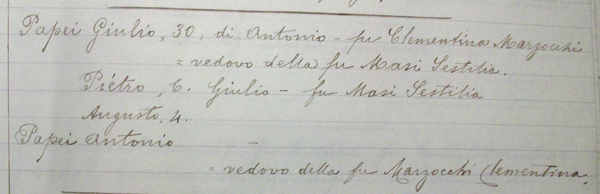 Papei Giulio, 30, di Antonio - fu Clementina Marzocchi
= vedovo della fu Masi Sestilia.
Piétro, 6. Giulio - fu Masi Sestilia
Augusto, 4.
Papei Antonio -
= vedovo della fu Marzocchi Clementina